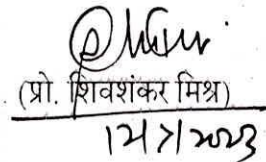 (प्रो. शिवशंकर मिश्र)
12/7/2023